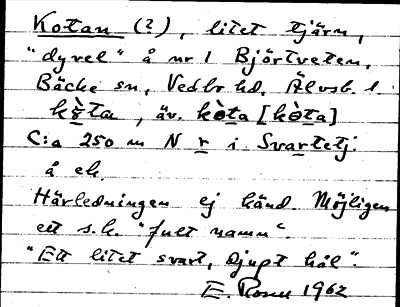 Kotan (?), litet tjärn,
"dyvel" å nr 1 Björtveten,
Bäcke sn, Vedbo hd, Älvsb. l.
, äv. kòta [kòta]
C:a 250 m N r i Svartetj.
å ek.
Härledningen ej känd. Möjligen
ett s.k. "fult namn".
"Ett litet svart, djupt hål".
E. 1962